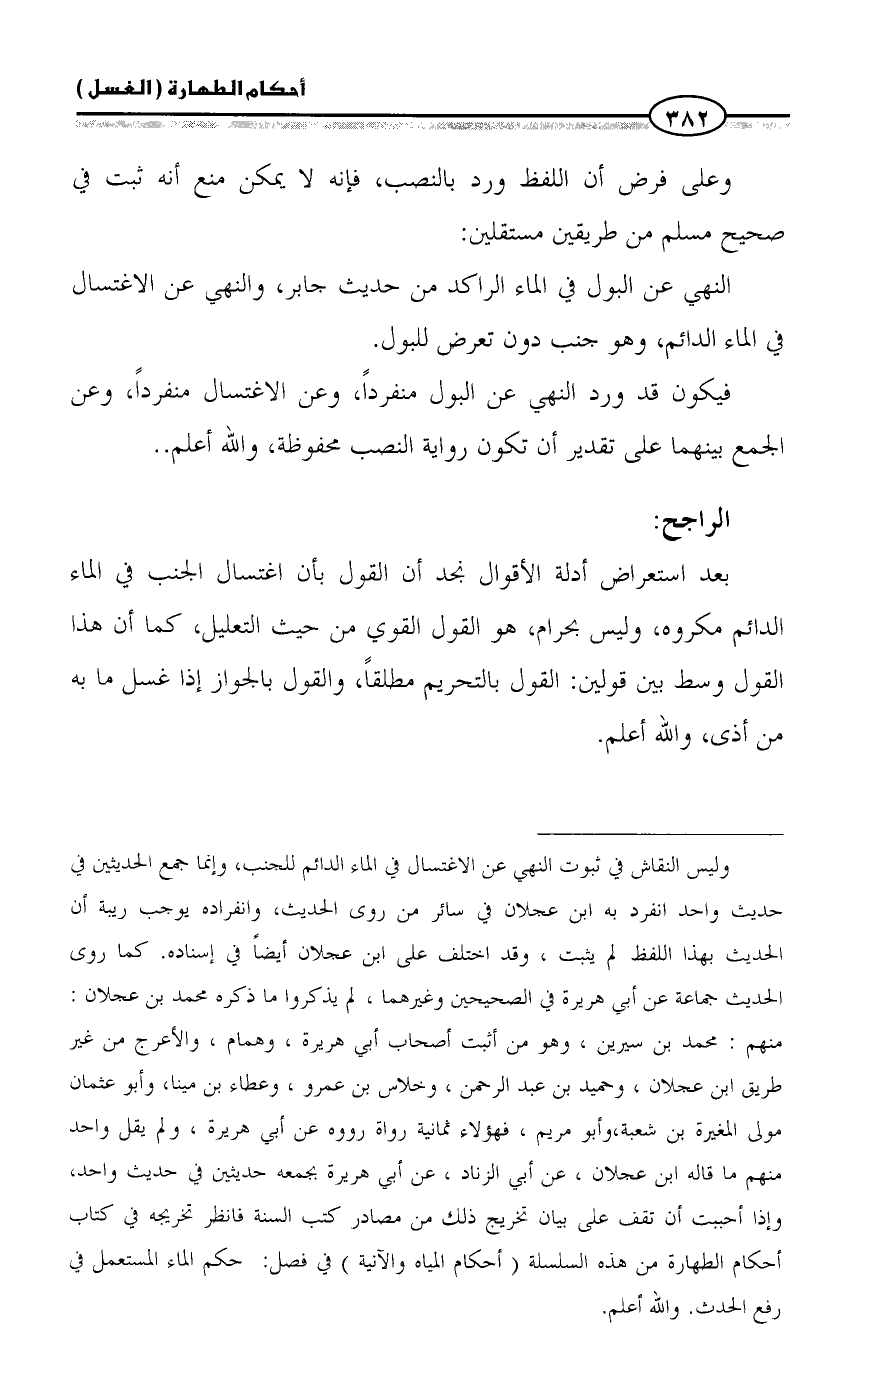 أحكام الطهارة (الغسل)
٣٨٢
وعلى فرض أن اللفظ ورد بالنصب، فإنه لا يمكن منع أنه ثبت في
صحيح مسلم من طريقين مستقلين:
النهي عن البول في الماء الراكد من حديث جابر، والنهي عن الاغتسال
في الماء الدائم، وهو جنب دون تعرض للبول.
فيكون قد ورد النهي عن البول منفرداً، وعن الاغتسال منفرداً، وعن
الجمع بينهما على تقدير أن تكون رواية النصب محفوظة، والله أعلم..
الراجح:
بعد استعراض أدلة الأقوال نجد أن القول بأن اغتسال الجنب في الماء
الدائم مكروه، وليس بحرام، هو القول القوي من حيث التعليل، كما أن هذا
القول وسط بين قولين: القول بالتحريم مطلقاً، والقول بالجواز إذا غسل ما به
من أذى، والله أعلم.
وليس النقاش في ثبوت النهي عن الاغتسال في الماء الدائم للجنب، وإنما جمع الحديثين في
حديث واحد انفرد به ابن عجلان في سائر من روى الحديث، وانفراده يوجب ريبة أن
الحديث بهذا اللفظ لم يثبت ، وقد اختلف على ابن عجلان أيضاً في إسناده. كما روى
الحديث جماعة عن أبي هريرة في الصحيحين وغيرهما ، لم يذكروا ما ذكره محمد بن عجلان :
منهم : محمد بن سيرين ، وهو من أثبت أصحاب أبي هريرة ، وهمام ، والأعرج من غير
طريق ابن عجلان ، وحميد بن عبد الرحمن ، وخلاس بن عمرو ، وعطاء بن مينا، وأبو عثمان
مولى المغيرة بن شعبة،وأبو مريم ، فهؤلاء ثمانية رواة رووه عن أبي هريرة ، ولم يقل واحد
منهم ما قاله ابن عجلان ، عن أبي الزناد ، عن أبي هريرة بجمعه حديثين في حديث واحد،
وإذا أحببت أن تقف على بيان تخريج ذلك من مصادر كتب السنة فانظر تخريجه في كتاب
أحكام الطهارة من هذه السلسلة ( أحكام المياه والآنية ) في فصل: حكم الماء المستعمل في
رفع الحدث. والله أعلم.